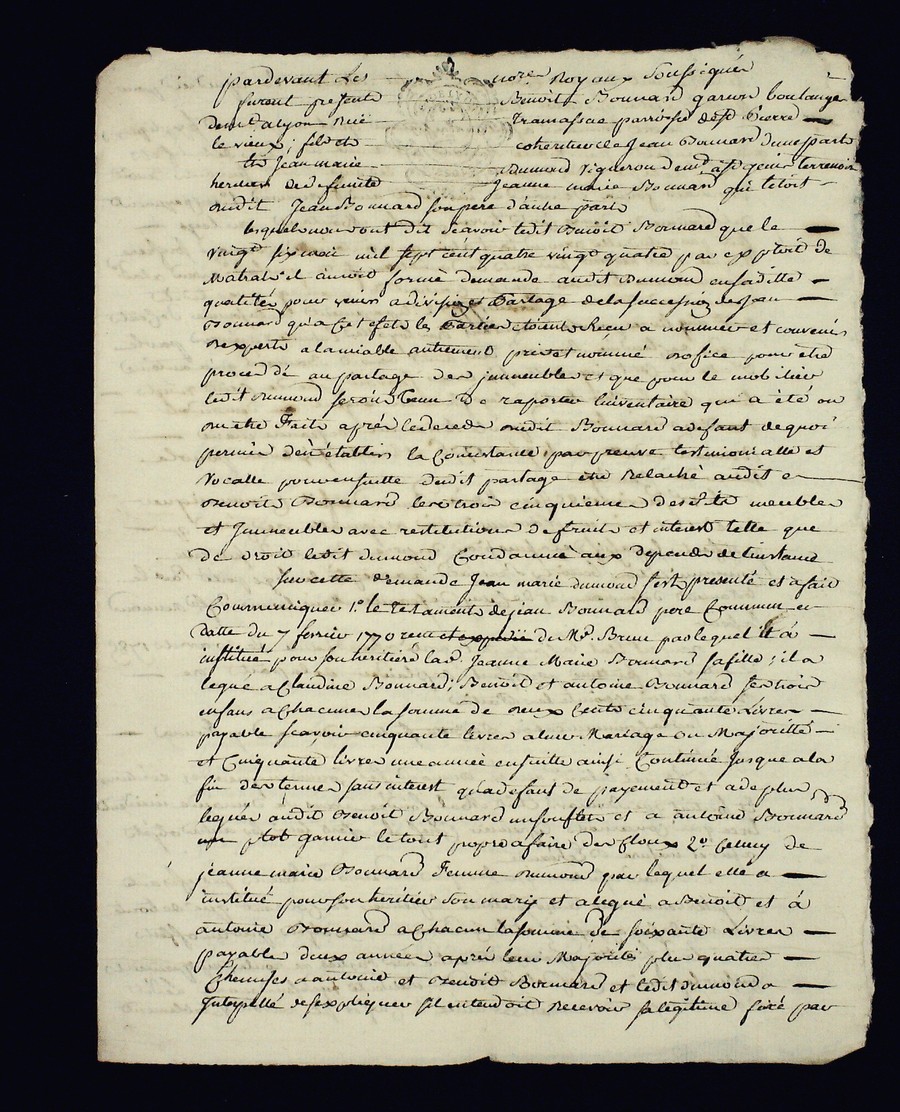 pardevant Les nores Royaux Soussignés
furent presents Benoit Bonnard garcon boulanger
demt. a Lyon Rue tramassac parroisse de st pierre
le vieux, fils et coheritier de Jean Bonnard d'une part
Et Jean marie dumond vigneron demt. a st genis terrenoire
heritier de defunte Jeanne marie Bonnard qui l'etoit
dudit Jean Bonnard son pere d'autre part
lesquels nous ont dit scavoir ledit Benoit Bonnard que le
vingt six mai mil sept cent quatre vingt quatre par exploit de
Matral il auroit formé demande audit Dumond en saditte
qualité pour venir a division et Partage de la succession
Bonnard qu'a Cet efet les Parties a nommer et convenir
d'experts a lamiable autrement pris et nommé d'ofice pour etre
procedé au partage des immeubles et que pour le mobilier
ledit dumond seroit tenu de raporter linventaire qui a été ou
du etre Fait aprés le deces dudit Bonnard a defaut de quoi
permis d'en établir la Consistance par preuve testimonialle et
vocalle pour ensuitte dudit partage etre Relaché audit
Benoit Bonnard les trois cinquiemes desdits meubles
et Immeubles avec restitution de fruits et interest telle que
de droit ledit dumond Condamné aux depends de l'instance
Sur cette demande Jean marie dumond sest presenté et a fait
Communiquer 1º. le testament de jean Bonnard pere Commun en
datte du 7 fevrier 1770 recu et expedié de Me. Brun par lequel il a
institué pour son heritiere lad. Jeanne Marie Bonnard sa fille; il a
legué a Claudine Bonnard, Benoit et antoine Bonnard ses trois
enfans a Chacun la somme de deux Cents cinquante Livres
payable scavoir cinquante livres a leur Mariage ou Majoritté
et Cinquante livres une année ensuitte ainsi Continué jusque a la
fin des termes sans interest qu'a defaut de payement et a de plus
legué audit Benoit Bonnard un souflet et a antoine Bonnard
un garnie le tout propre a faire des Cloux 2º. Celuy de
jeanne marie Bonnard Femme dumond par lequel elle a
institué pour son heritier son mary et a legué a Benoit et á
antoine Bonnard a Chacun la somme de soixante Livres
payable deux années aprés leur Majorité plus quatre
Chemises a antoine et Benoit Bonnard et ledit dumond a
Interpellé de s'expliquer sil entendoit recevoir sa legitime fixé par